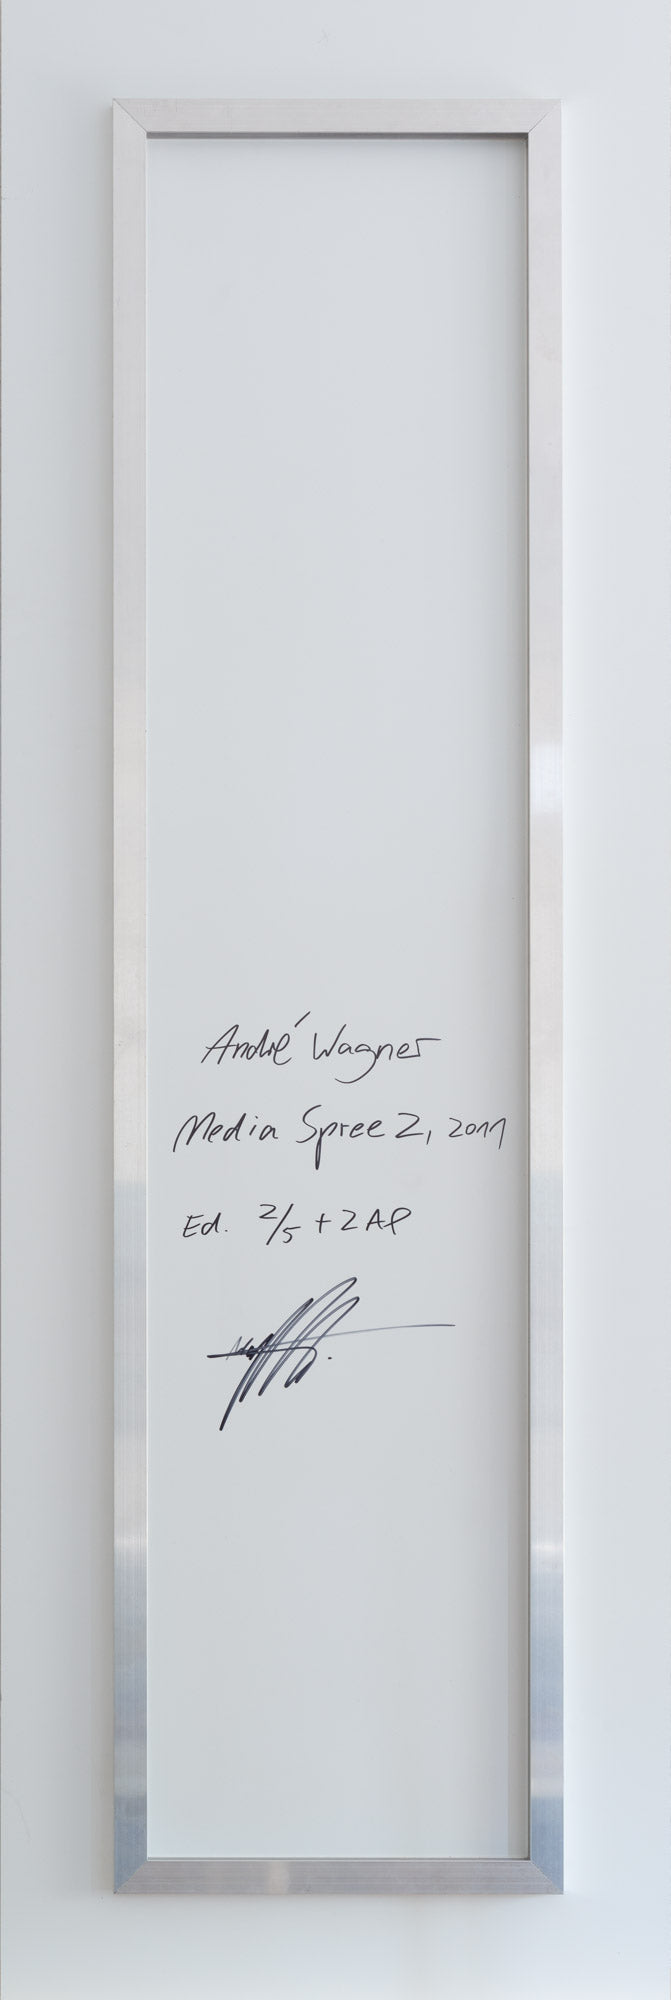 André Wagner
Media Spree 2, 2011
Ed. 2/5 + 2 AP